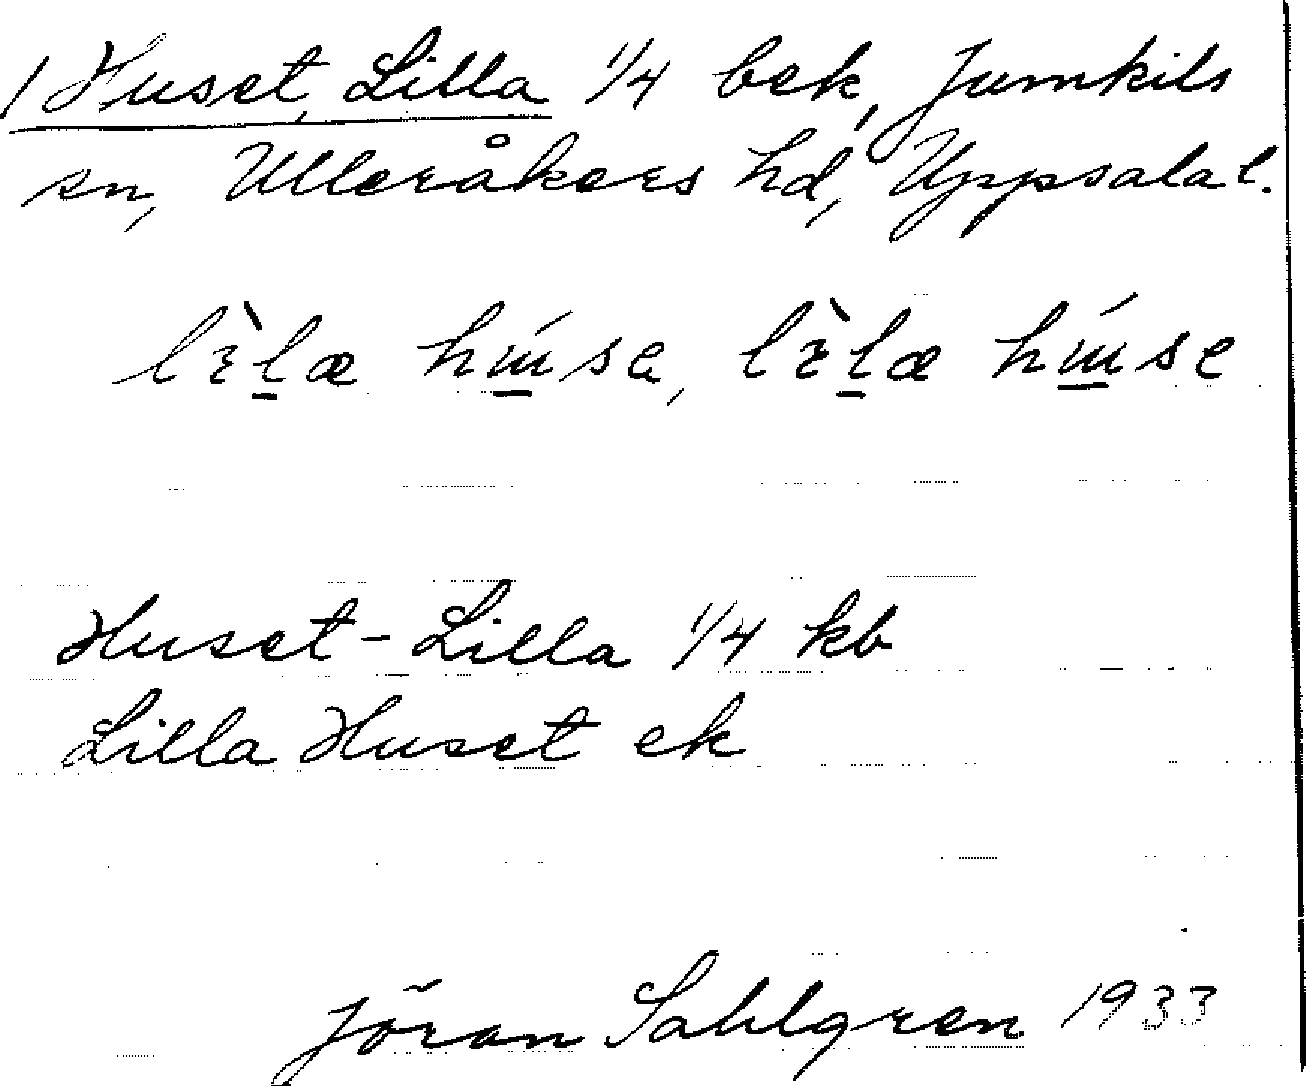 Huset, Lilla 1/4 bek, Jumkils
sn, Ulleråkers hd, Uppsala l.
Huset-Lilla 1/4 kb
Lilla Huset ek
Jöran Sahlgren 1933